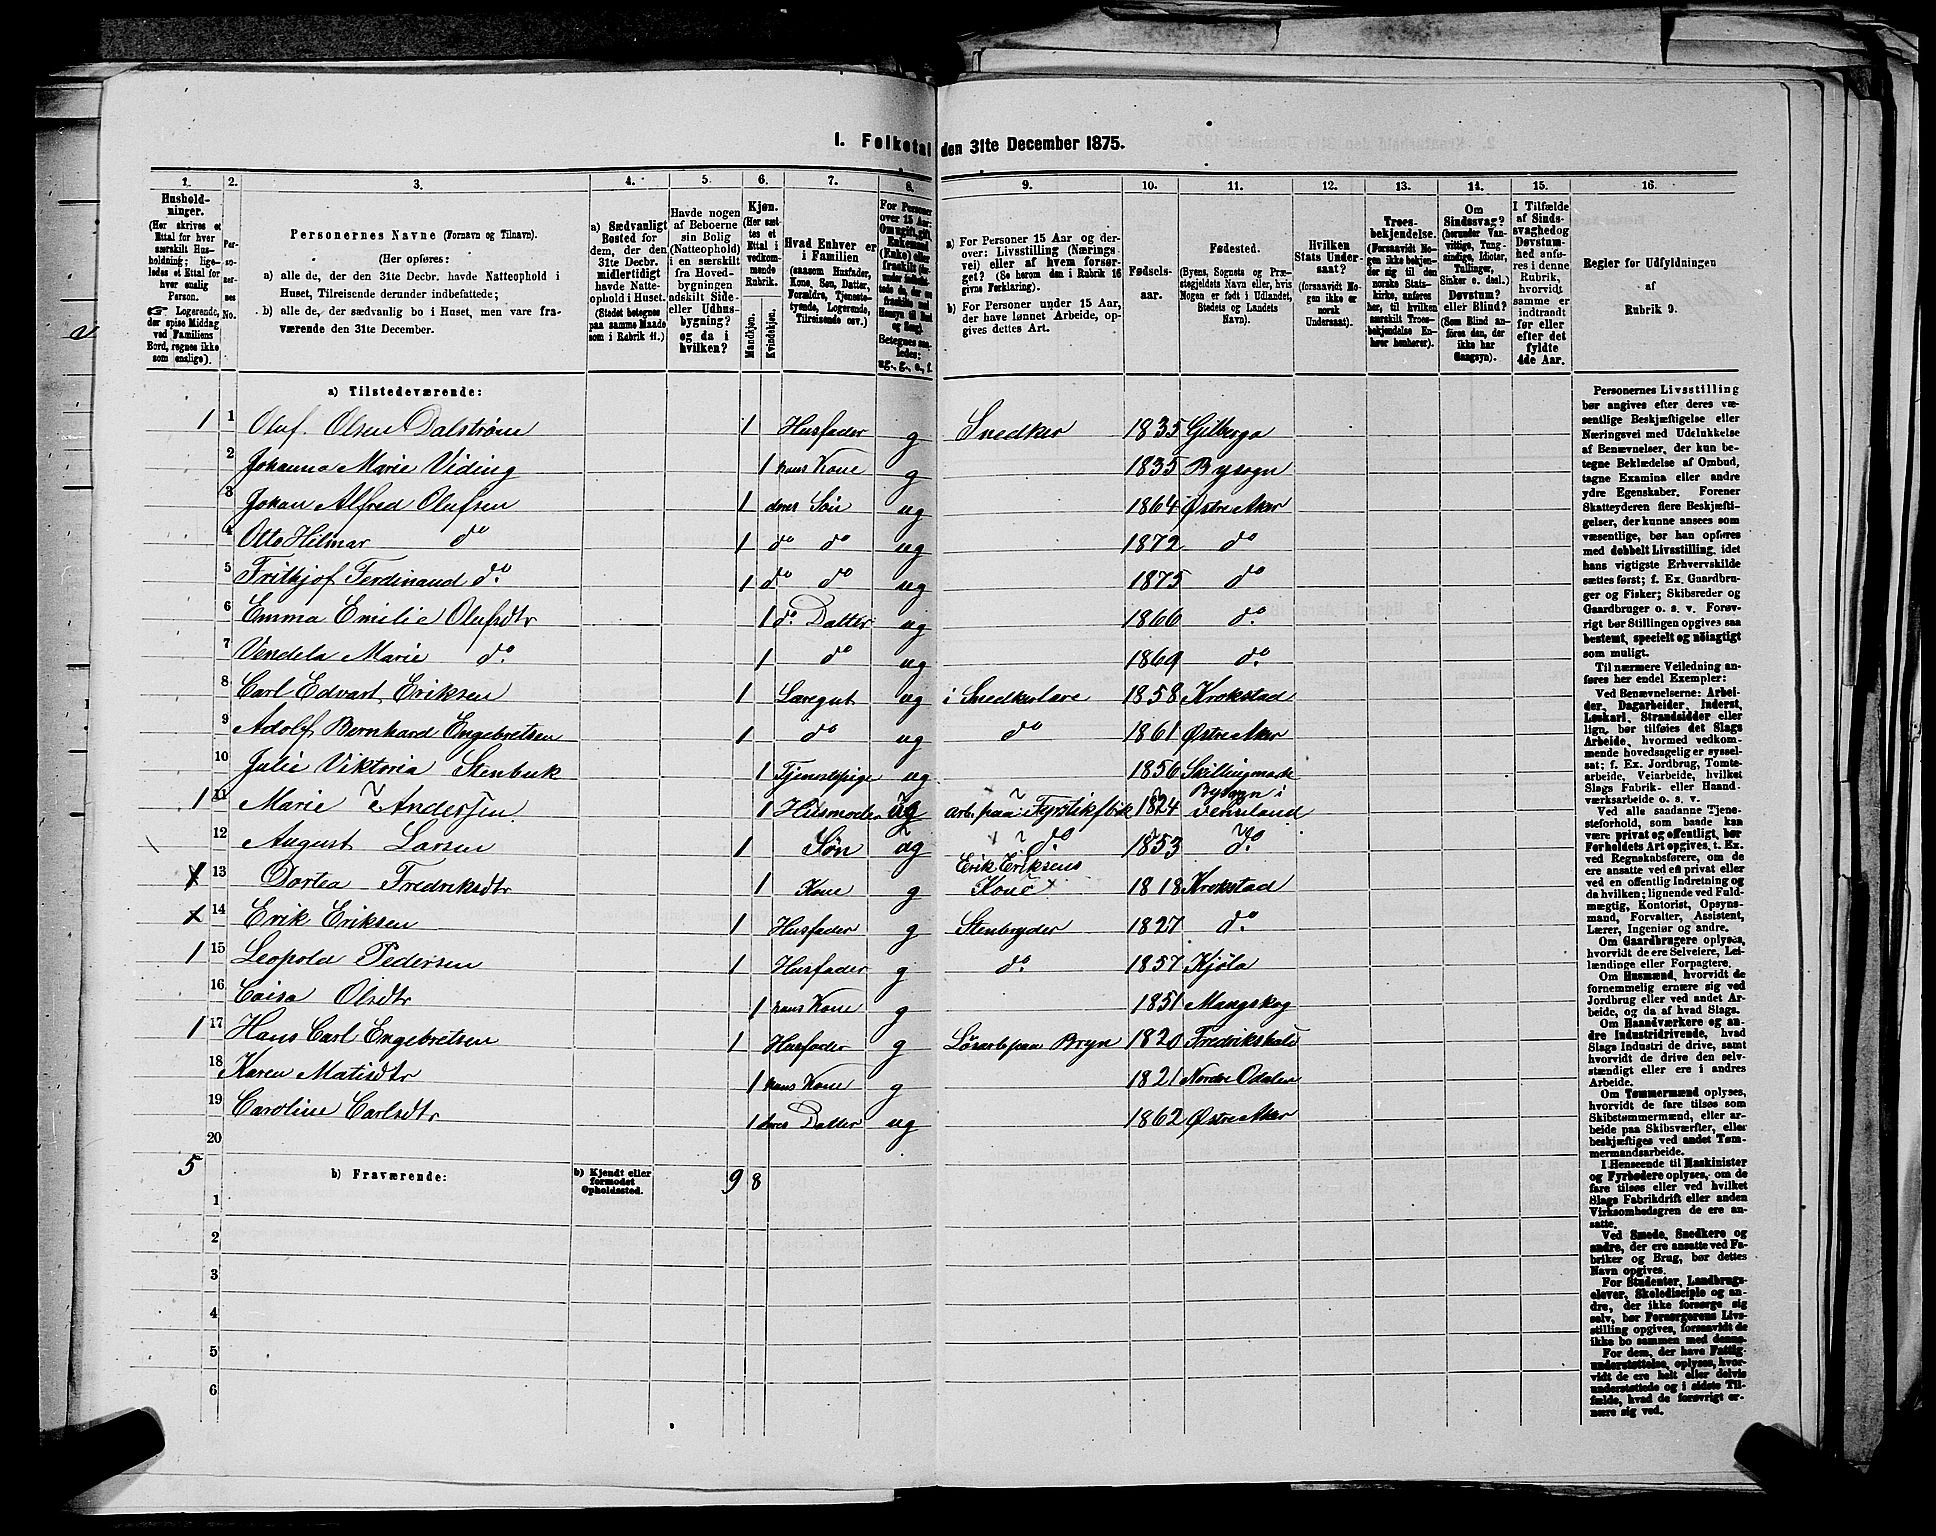 1. Folketal den 31te December 1875.
1. 2. 3. 4. 5. 6. 7. 8. 9. 10. 11. 12. 13. 14. 15. 16.
Husholdninger.
(Her skrives et Ettal for hver særskilt Husholdning; ligeledes et Ettal for hver enslig Person.
☞ Logerende, der spise Middag ved Familiens Bord, regnes ikke som enslige).
Personernes No.
Personernes Navne (Fornavn og Tilnavn).
(Her opføres:
a) alle de, der den 31te Decbr. havde Natteophold i Huset, Tilreisende derunder indbefattede;
b) alle de, der sædvanlig bo i Huset, men vare fraværende den 31te December.
a) Sædvanligt Bosted for dem, der den 31te Decbr. midlertidigt havde Natteophold i Huset. (Stedet betegnes paa samme Maade som i Rubrik 11.)
Havde nogen af Beboerne sin Bolig (Natteophold) i en særskilt fra Hovedbygningen adskilt Side- eller Udhusbygning? og da i hvilken?
Kjøn. (Her sættes et Ettal i vedkommende Rubrik.
Mandkjøn.
Kvindekjøn.
Hvad Enhver er i Familien
(saasom Husfader, Kone, Søn, Datter, Forældre, Tjenestetyende, Logerende, Tilreisende osv.)
For Personer over 15 Aar: Om ugift, gift, Enkemand (Enke) eller fraskilt
Betegnes saaledes: ug., g., e., f.
a) For Personer 15 Aar og derover: Livsstilling (Næringsvei) eller af hvem forsørget? (Se herom den i Rubrik 16 givne Forklaring).
b) For Personer under 15 Aar, der have lønnet Arbeide, opgives dettes Art.
Fødselsaar.
Fødested.
(Byens, Sognets og Præstegjeldets Navn eller, hvis Nogen er født i Udlandet, Stedets og Landets Navn).
Hvilken Stats Undersaat?
(forsaavidt Nogen ikke er norsk Undersaat).
Troesbekjendelse.
(Forsaavidt Nogen ikke bekjender sig til den norske Statskirke, anføres her, til hvilken særskilt Troesbekjendelse Enhver henhører).
Om Sindssvag? (herunder Vanvittige, Tungsindige, Idioter, Tullinger, Sinker o. desl.) Døvstum? eller Blind? (Som Blind anføres den, der ikke har Gangsyn).
I Tilfælde af Sindssvaghed og Døvstumhed anføres i denne Rubrik, hvorvidt samme er indtraadt før eller efter det fyldte 4de Aar.
Regler for Udfyldningen af Rubrik 9.
a) Tilstedeværende:
1 1 Oluf. Olsen Dalstrøm 1 Husfader g Snedker 1835 Gilberga
2 Johanna Marie Viding 1 hans Kone g 1835 Bysogn
3 Johan Alfred Olufsen 1 deres Søn ug 1864 Østre Aker
4 Otto Hilmar do 1 do do ug 1872 do
5 Frithjof Ferdinand do. 1 do do ug 1875 do
6 Emma Emilie Olufsdtr 1 do. Datter ug 1866 do.
7 Vendela Marie do. 1 do ug 1869 do.
8 Carl Edvart Eriksen 1 Læregut ug i Snedkerlære 1858 Krokstad
9 Adolf Bernhard Engebretsen 1 do ug do 1861 Østre Aker
10 Julie Viktoria Stenbuk 1 Tjenestepige ug 1856 Skillingmark
1 11 Marie Andersen 1 Husmoder ug arb. paa Fyrstikfbk 1824 Bysogn i Vermland
12 August Larsen 1 Søn ug do. 1853 do.
1 13 Dortea Fredriksdtr 1 Kone g Erik Eriksens Kone 1818 Krokstad
14 Erik Eriksen 1 Husfader g Stenbryder 1827 do.
1 15 Leopold Pedersen 1 Husfader g do. 1857 Kjøla
16 Caisa Olsdtr 1 hans Kone g 1851 Mangskog
1 17 Hans Carl Engebretsen 1 Husfader g Løsarb. paa Bryn 1820 Fredrikshald
18 Karen Matisdtr 1 hans Kone g 1821 Nordre Odalen
19 Caroline Carlsdtr 1 deres Datter ug 1862 Østre Aker
20
5 b) Fraværende: b) Kjendt eller formodet Opholdssted. 9 8
1
2
3
4
5
6
Personernes Livsstilling bør angives efter deres væsentlige Beskjæftigelse eller Næringsvei med Udelukkelse af Benævnelser, der kun betegne Beklædelse af Ombud, tagne Examina eller andre ydre Egenskaber. Forener Skatteyderen flere Beskjæftigelser, der kunne ansees som væsentlige, bør han opføres med dobbelt Livsstilling, idet hans vigtigste Erhvervskilde sættes først; f. Ex. Gaardbruger og Fisker; Skibsreder og Gaardbruger o. s. v. Forøvrigt bør Stillingen opgives saa bestemt, specielt og nöiagtigt som muligt.
Til nærmere Veiledning anføres her endel Exempler:
Ved Benævnelserne: Arbeider, Dagarbeider, Inderst, Løskarl, Strandsidder eller lign. bør tilføies det Slags Arbeide, hvormed vedkommende hovedsagelig er sysselsat; f. Ex. Jordbrug, Tomtearbeide, Veiarbeide, hvilket Slags Fabrik- eller Haandværksarbeide o. s. v.
Ved alle saadanne Tjenesteforhold, som baade kan være privat og offentligt, bør Forholdets Art opgives, t. Ex. ved Regnskabsførere, om de ere ansatte ved en privat eller ved en offentlig Indretning og da hvilken; lignende ved Fuldmægtig, Kontorist, Opsynsmand, Forvalter, Assistent, Lærer, Ingeniør og andre.
Om Gaardbrugere oplyses, hvorvidt de ere Selveiere, Leilændinge eller Forpagtere.
Om Husmænd, hvorvidt de fornemmelig ernære sig ved Jordbrug eller ved andet Arbeide, og da af hvad Slags.
Om Haandværkere og andre Industridrivende, hvad Slags Industri de drive, samt hvorvidt de drive den selvstændigt eller ere i andres Arbeide.
Om Tømmermænd oplyses, hvorvidt de fare tilsøs som Skibstømmermænd, eller arbeide paa Skibsværfter, eller beskjæftiges ved andet Tømmermandsarbeide.
I Henseende til Maskinister og Fyrbødere oplyses, om de fare tilsøs eller ved hvilket Slags Fabrikdrift eller anden Virksomhedsgren de ere ansatte.
Ved Smede, Snedkere og andre, der ere ansatte ved Fabriker og Brug, bør dettes Navn opgives.
For Studenter, Landbrugselever, Skoledisciple og andre, der ikke forsørge sig selv, bør Forsørgerens Livsstilling opgives, forsaavidt de ikke bo sammen med denne.
For dem, der have Fattigunderstøttelse, oplyses, hvorvidt de ere helt eller delvis understøttede og i sidste Tilfælde, hvad de forøvrigt ernære sig ved.